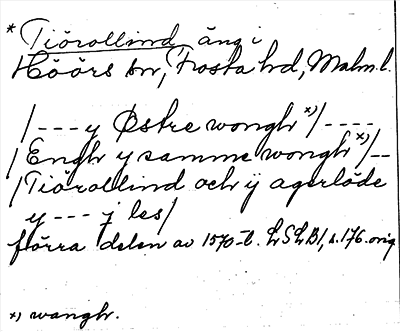 * Tiörollind äng i
Höörs sn, Frosta hd, Malm. l.
/---y Østre wongh *)/----
/Engh y samme wongh *)/--
/Tiörollind och ij agerlöde
y --- j les/
förra delen av 1570-t. LSLB1, s. 176. orig
*) wangh.